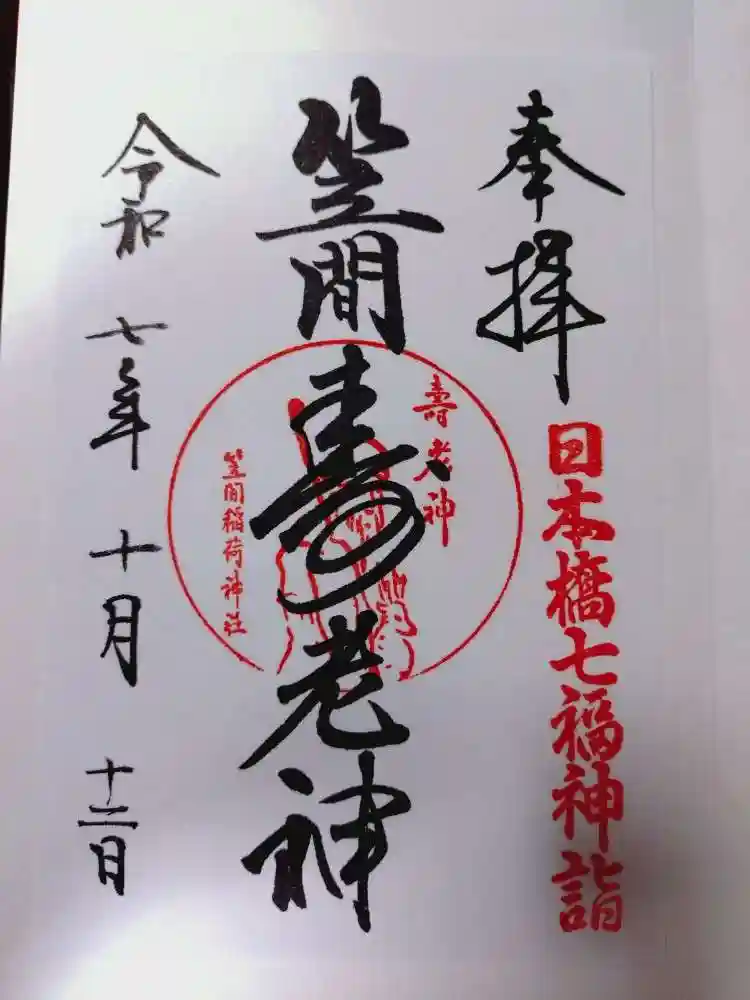 奉拝
日本橋七福神詣
笠間寿老神
壽老神
笠間稲荷神社
令和七年十月十二日